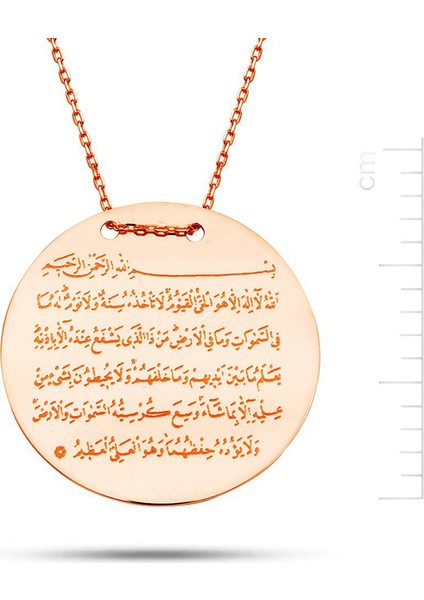 بِسْمِ اللهِ الرَّحْمٰنِ الرَّحِيمِ
اَللهُ لَا اِلٰهَ اِلَّا هُوَ الْحَيُّ الْقَيُّومُ لَا تَأْخُذُهُ سِنَةٌ وَلَا نَوْمٌ لَهُ مَا
فِي السَّمٰوَاتِ وَمَا فِي الْاَرْضِ مَنْ ذَا الَّذِي يَشْفَعُ عِنْدَهُ اِلَّا بِاِذْنِهِ
يَعْلَمُ مَا بَيْنَ اَيْدِيهِمْ وَمَا خَلْفَهُمْ وَلَا يُحِيطُونَ بِشَيْءٍ مِنْ
عِلْمِهِ اِلَّا بِمَا شَاءَ وَسِعَ كُرْسِيُّهُ السَّمٰوَاتِ وَالْاَرْضَ
وَلَا يَؤُدُهُ حِفْظُهُمَا وَهُوَ الْعَلِيُّ الْعَظِيمُ
cm